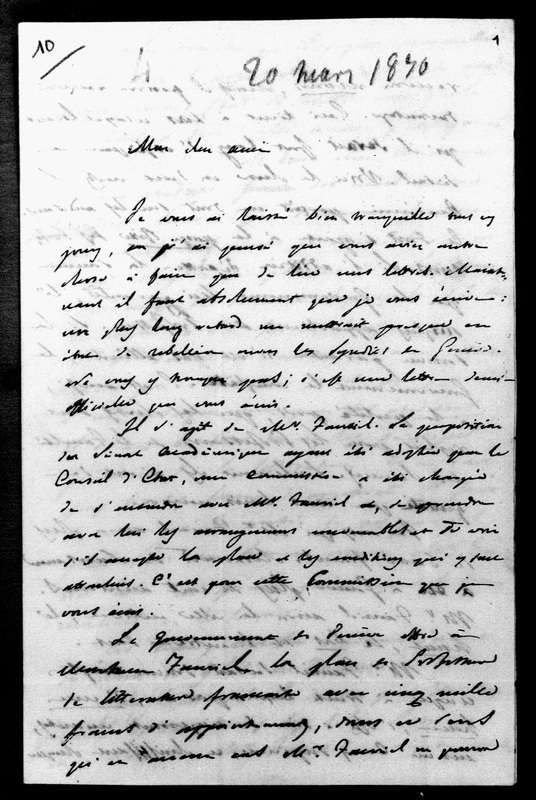 10
1
4
20 mars 1830
Mon cher ami
Je vous ai laissé bien tranquille tous ces
jours, car j'ai pensé que vous aviez autre
chose à faire que de lire mes lettres. Mainte-
nant il faut absolument que je vous écrive:
un plus long retard me mettrait presque en
état de rebellion envers les Syndics de Genève.
Ne vous y trompez pas; c'est une lettre demi-
officielle que vous aurez.
Il s'agit de Mr. Fauriel. La proposition
du Sénat Académique ayant été adoptée par le
Conseil d'Etat, une Commission a été chargée
de s'entendre avec Mr. Fauriel et de prendre
avec lui les arrangemens convenables et de voir
s'il accepte la place et les conditions qui y sont
attachées. C'est pour cette Commission que je
vous écris.
Le Gouvernement de Genève offre à
Monsieur Fauriel la place de Professeur
de littérature française avec cinq mille
francs d'appointemens, dans ce sens
qu'en aucun cas Mr. Fauriel ne pourra